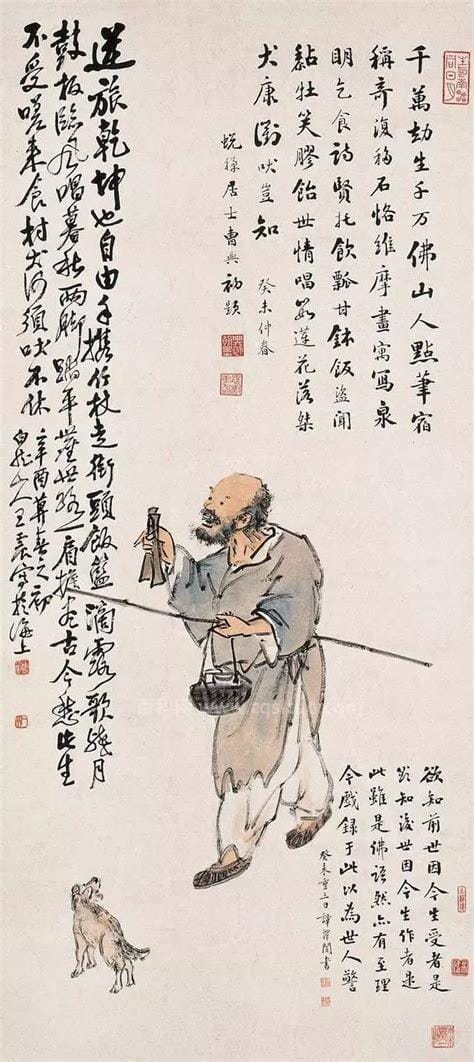 千萬劫生千万佛山人點筆宿
稱奇復移石恪維摩畫寓寫泉
明乞食詩賢托飲瓢甘鉢飯盜聞
黏牡笑膠飴世情唱蓮花落桀
犬康衢吠豈知
癸未仲春
居士曹典初題
逆旅乾坤也自由手攜竹杖走街頭飯籃滴露歌殘月
鼓板臨風唱暮秋兩腳踏平塵世路一肩擔盡古今愁此生
不受嗟來食村犬何須吠不休
辛酉莫春之初
白龍山人王震寫於海上
欲知前世因今生受者是
欲知後世因今生作者是
此雖是佛語然亦有至理
今戲錄于此以為世人警
癸未重三日譚澤闓書